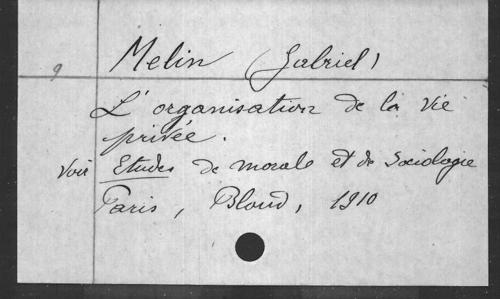 Melin (Gabriel)
9
L'organisation de la vie
privée.
Voir Etudes de morale et de Sociologie
Paris, Bloud, 1910